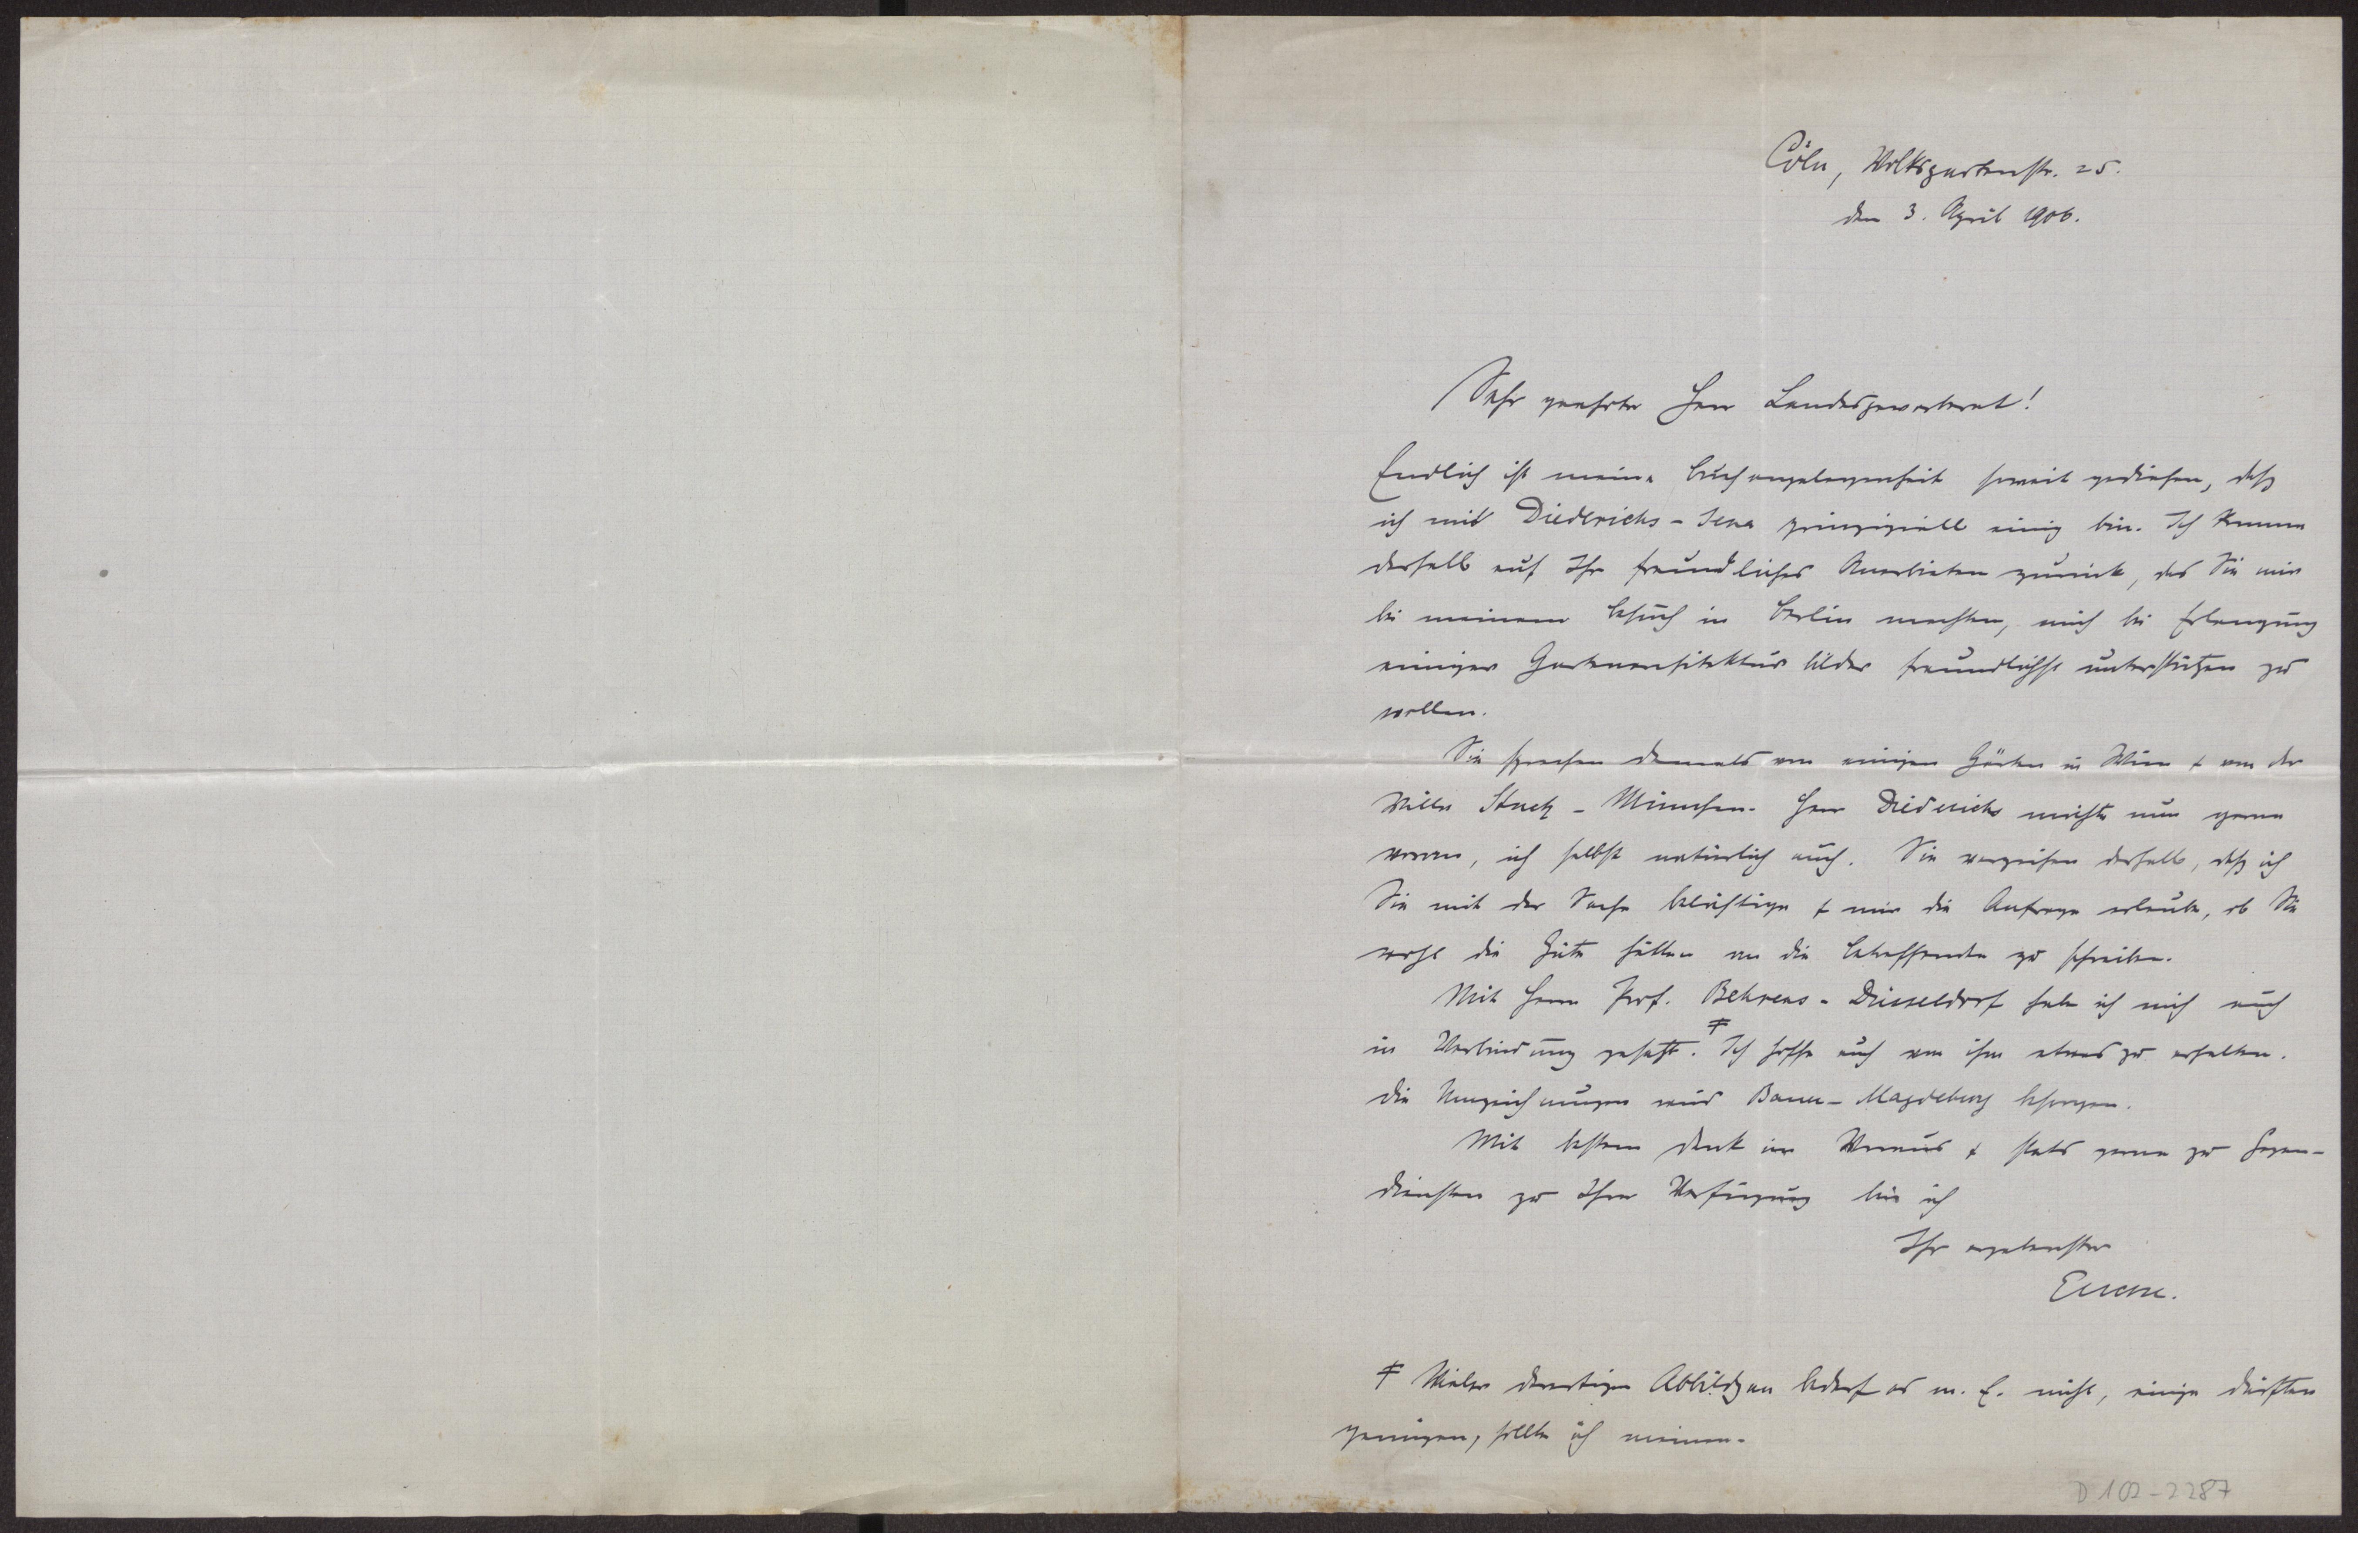 Cöln, Volksgartenstr. 25.
den 3. April 1906.
Sehr geehrter Herr Landesgewerberat!
Endlich ist meine Buchangelegenheit soweit gediehen, daß
ich mit Diederichs - Jena prinzipiell einig bin. Ich komme
deshalb auf Ihr freundliches Anerbieten zurück, das Sie mir
bei meinem Besuch in Berlin machten, mich bei Erlangung
einiger Gartenarchitektur bilder freundlichst unterstützen zu
wollen.
Sie sprachen damals von einigen Gärten in Wien & von der
Villa Stuck - München. Herr Diederichs möchte nun gerne
voran, ich selbst natürlich auch. Sie verzeihen deshalb, daß ich
Sie mit der Sache belästige & mir die Anfrage erlaube, ob Sie
wohl die Güte hätten an die betreffenden zu schreiben.
Mit Herrn Prof. Behrens - Düsseldorf habe ich mich auch
in Verbindung gesetzt. ‡ Ich hoffe auch von ihm etwas zu erhalten.
Die Umzeichnungen wird Bauer - Magdeburg besorgen.
Mit bestem Dank im Voraus & stets gerne zu Gegen-
diensten zu Ihrer Verfügung bin ich
Ihr ergebenster
Encke.
‡ Vieler derartiger Abbildgen bedarf es m. E. nicht, einige dürften
genügen, sollte ich meinen.
D 102-2287